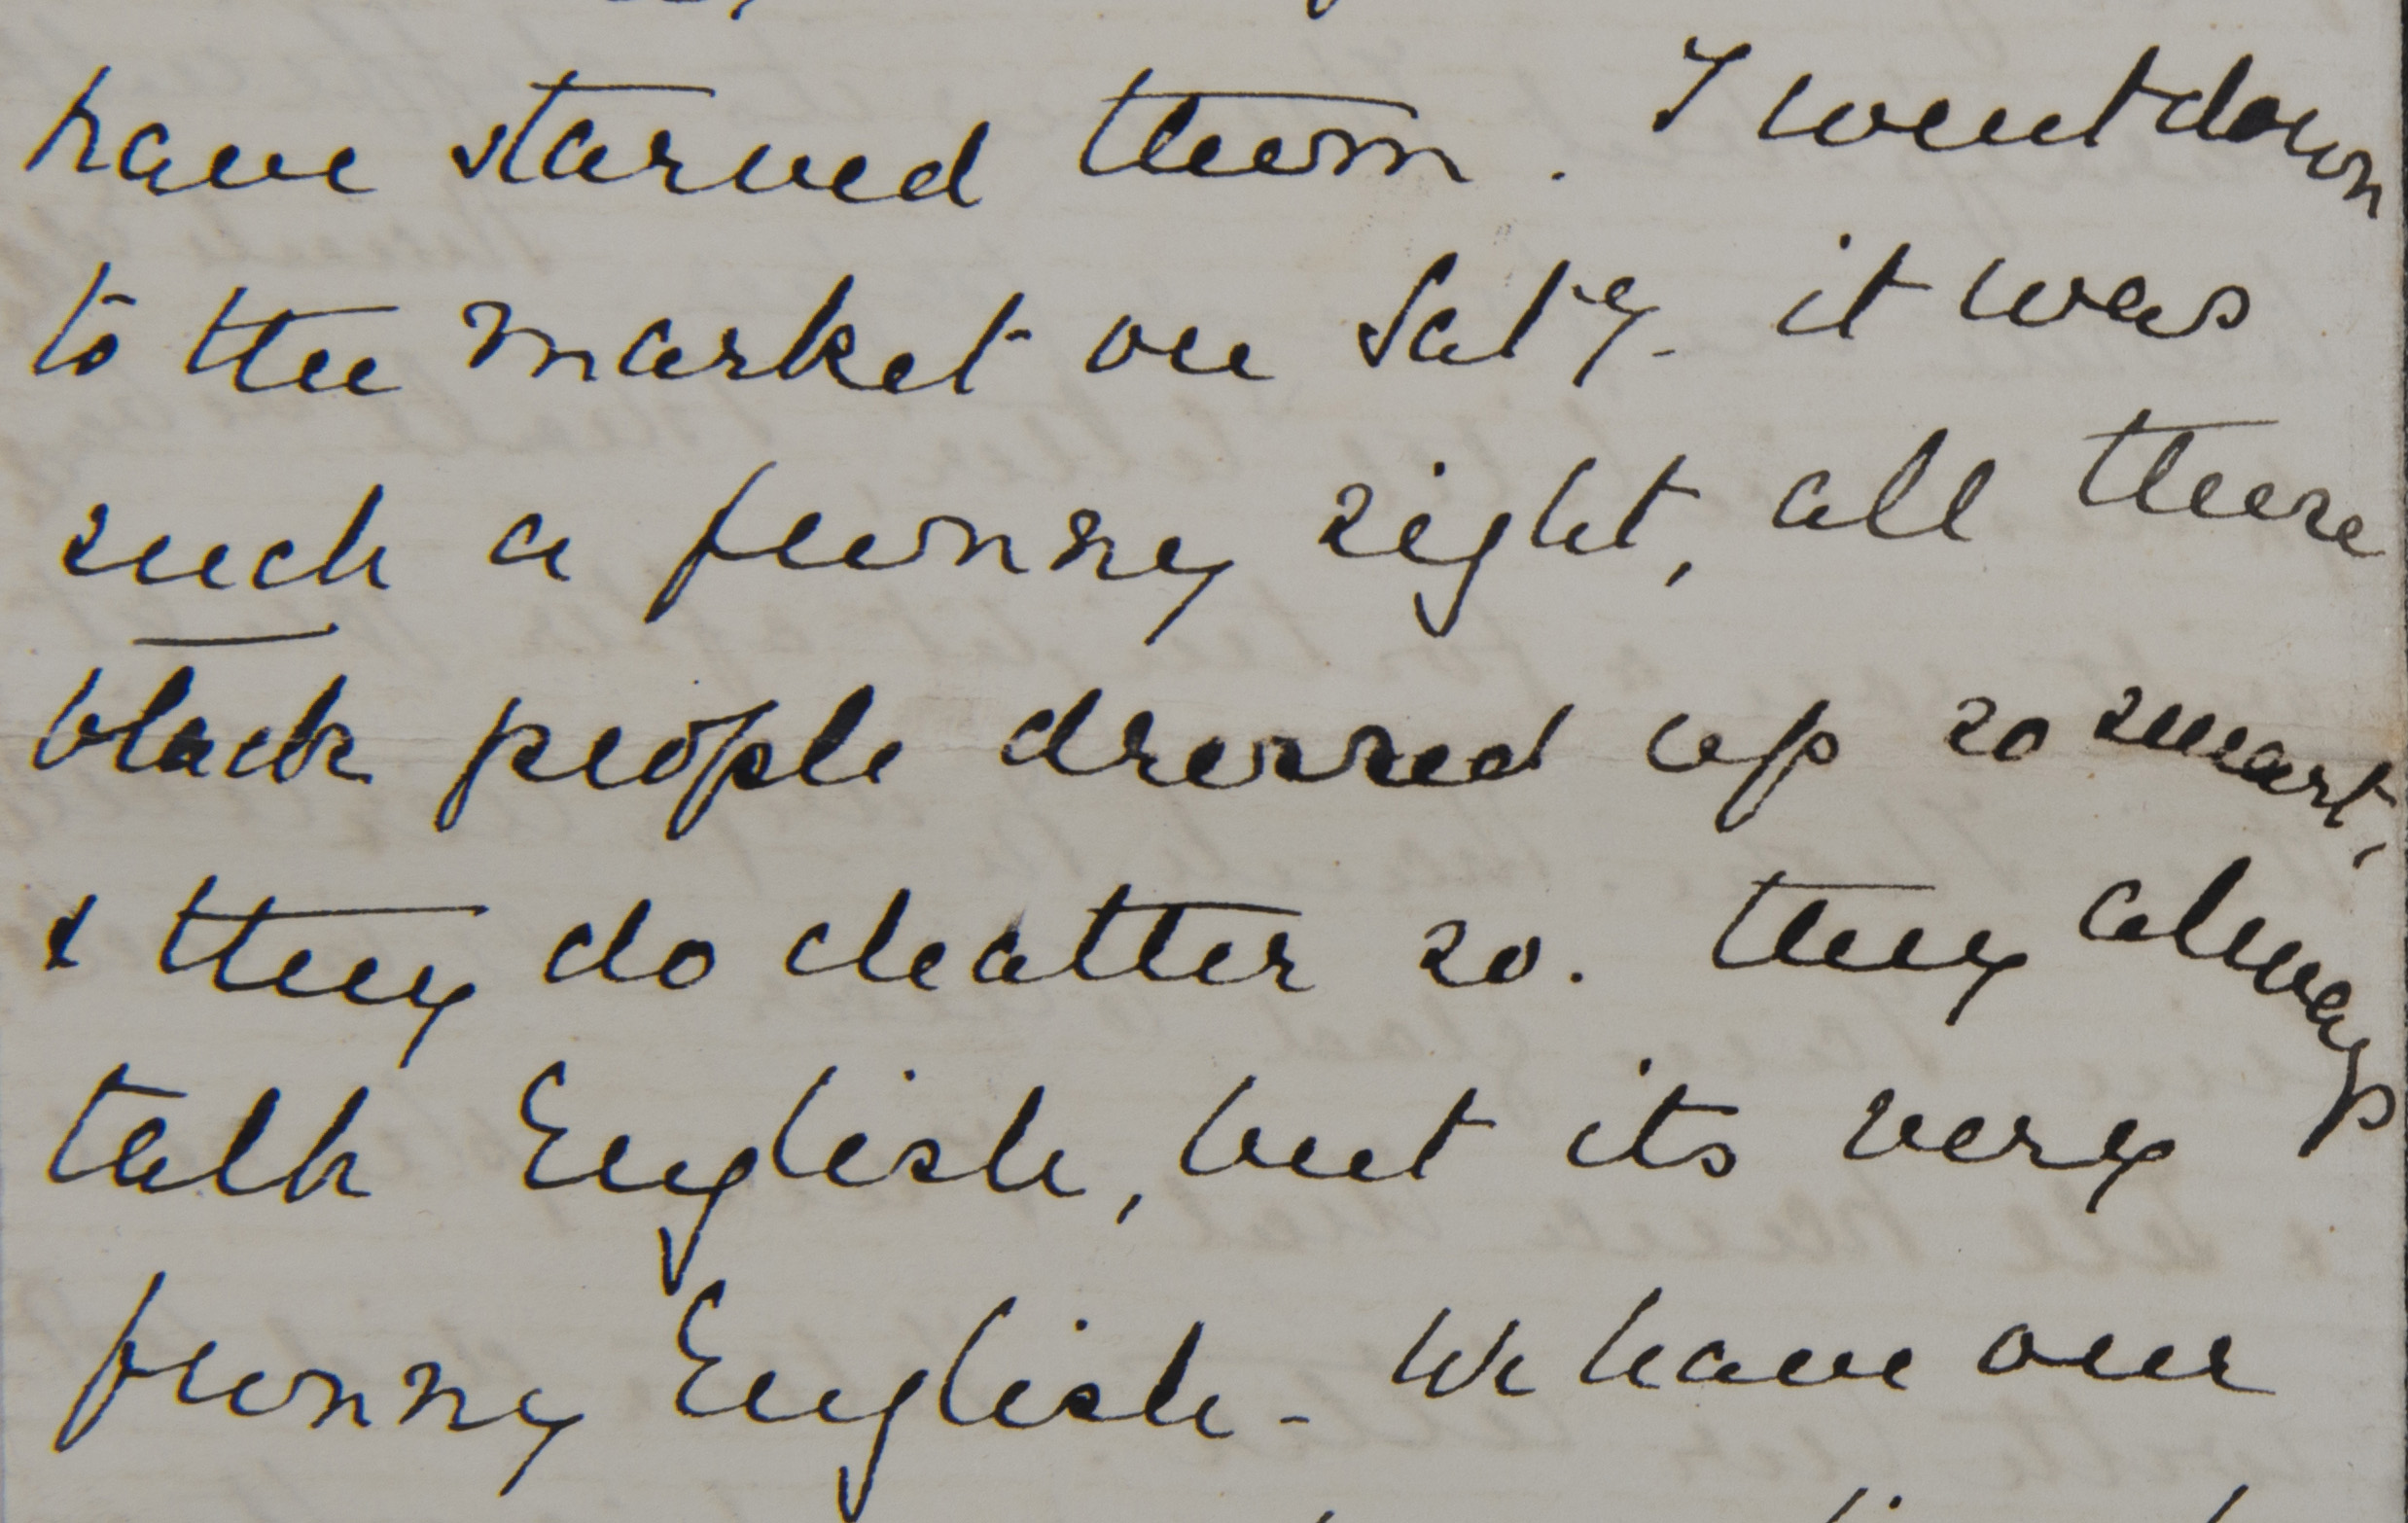 have starved them. I went down
to the market on Saty. it was
such a funny sight, all these
black people dressed up so smart,
& they do chatter so. they always
talk English, but its very
funny English - We have our